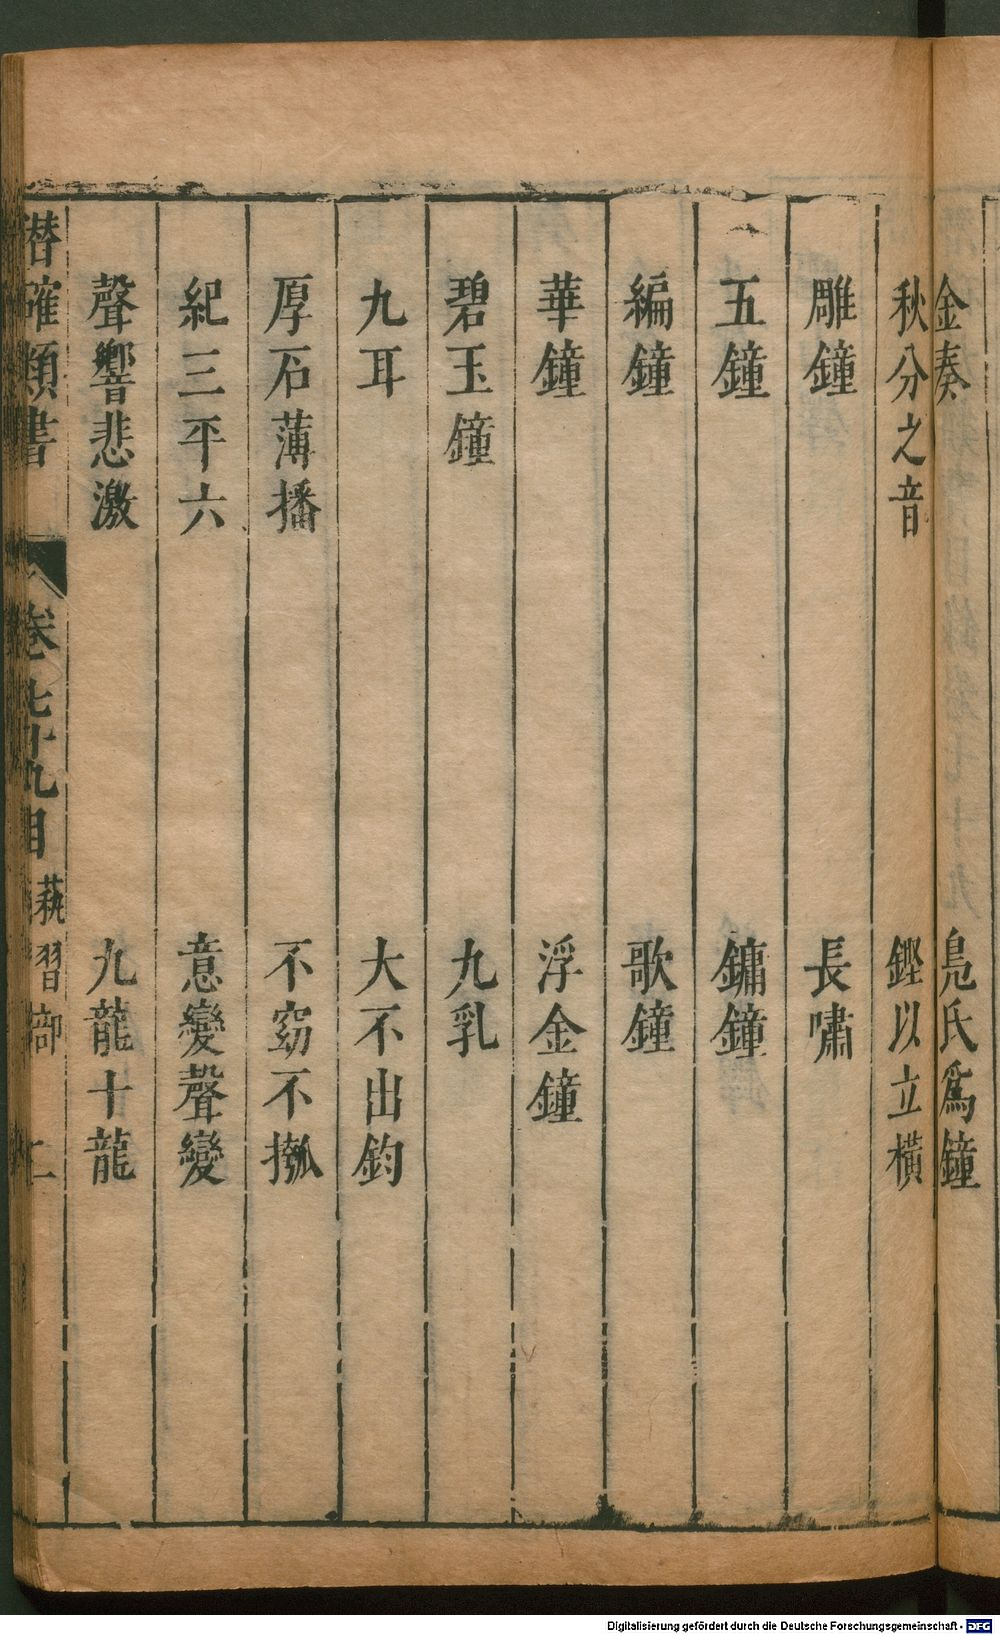 金奏 鳧氏爲鐘
秋分之音 鏗以立橫
雕鐘 長嘯
五鐘 鏞鐘
編鐘 歌鐘
華鐘 浮金鐘
碧玉鐘 九乳
九耳 大不出鈞
厚石薄播 不窕不摦
紀三平六 意變聲變
聲響悲激 九龍十龍
潛確類書 卷七十九目 蓺習部 二
Digitalisierung gefördert durch die Deutsche Forschungsgemeinschaft - DFG